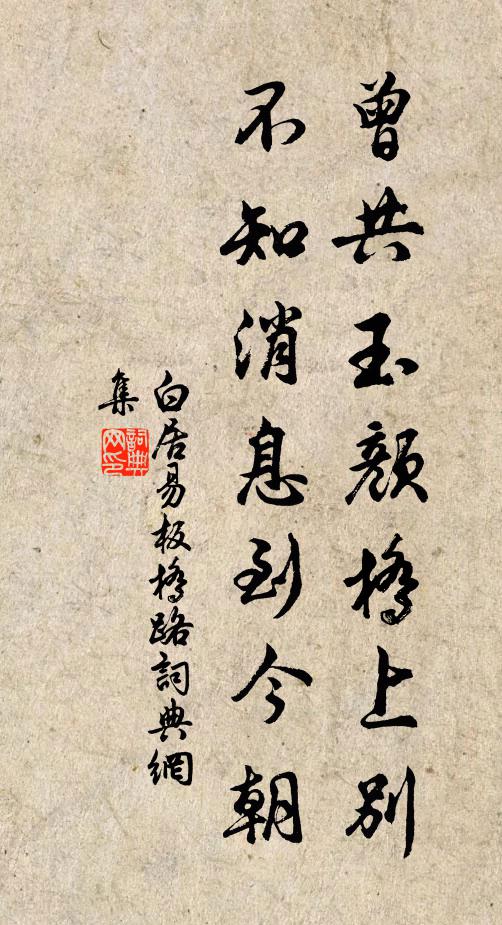 曾共玉顏橋上別
不知消息到今朝
白居易板橋路詞典網
集
詞典网印